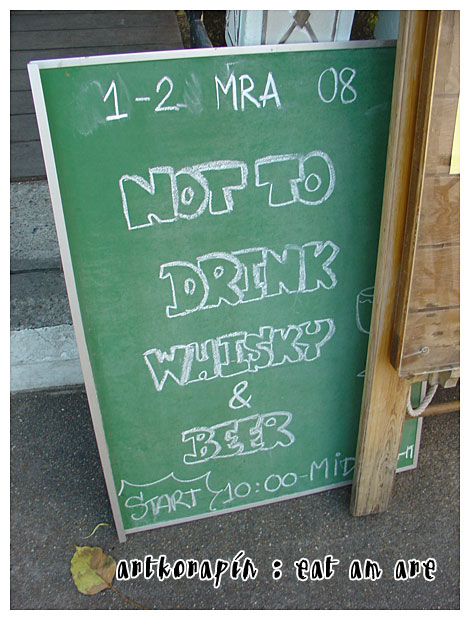 1-2 MRA 08
NOT TO
DRINK
WHISKY
&
BEER
START 10:00-MID
artkorapin : eat am are